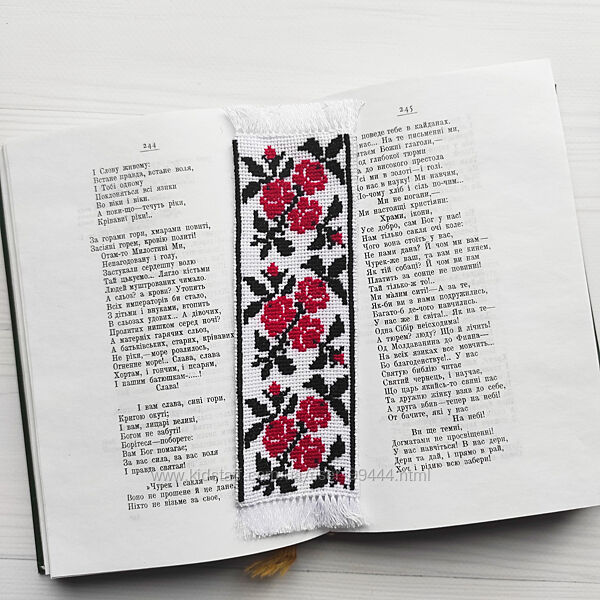 244
І Слову живому:
Встане правда, встане воля,
І Тобі одному
Поклоняться всі язики
Во віки і віки.
А поки-що—течуть ріки,
Крівавиї ріки!..
За горами гори, хмарами повиті,
Засіяні горем, кровію политі!
Отам-то Милостиві Ми,
Ненагодовану і голу,
Застукали сердешну волю
Тай цькуємо... Лягло кістьми
Людей муштрованих чимало.
А сльоз? а крови? Утопить
Всіх імператорів би стало,
З дітьми і внуками, втопить
В сльозах удових... А дівочих,
Пролитих нишком серед ночі?
А матерніх гарячих сльоз,
А батьківських, старих, крівавих
Не ріки,—море розлилось,
Огненне море!.. Слава, слава
Хортам, і гончим, і псарям,
І нашим батюшкам—...!
Слава!
І вам слава, сині гори,
Кригою окуті;
І вам, лицарі великі,
Богом не забуті!
Борітеся—поборете:
Вам Бог помагає;
За вас сила, за вас воля
І правда святая!
»Чурек і сакля
Воно не прошене й не дане,
Ніхто не візьме за своє,
245
поведе тебе в кайданах.
нас... На те письменні ми,
таєм Божні глаголи,—
од глибокої тюрми
А до високого престола
сі ми в золоті—і голі.
нас в науку! Ми навчим,
По-чому хліб і сіль по-чим!
Ми не погани,—
Ми настоящі християни:
Храми, ікони,
Усе добро, сам Бог у нас!
Нам тілько сакля очі коле:
Чого вона стоїть у вас,
Не нами дана? Й чом ми вам—
Чурек-же ваш, та вам не кинем,
Як тій собаці? Й чом ви нам
Платить за сонце не повинні!
Тай тілько-ж то!..
Ми малим ситі!—А за те,
Як-би ви з нами подружились,
Багато-б дечого навчились!
У нас же й світа!.. Як на те—
Одна Сібір неісходима!
А тюрем? люду? Що й лічить!
Од Молдаванина до Финна—
На всіх язиках все мовчить...
Бо благоденствує!.. У нас
Святую біблію читає
Святий чернець, і научає,
Що царь якийсь-то свині пас
Та дружню жінку взяв до себе,
А друга вбив—тепер на небі!
От бачите, які у нас
На небі!
Ви ще темні,
Догматами не просвіщенні!
У нас навчіться! В нас дери,
Дери та дай, і прямо в рай,
Хоч і рідню всю забери!